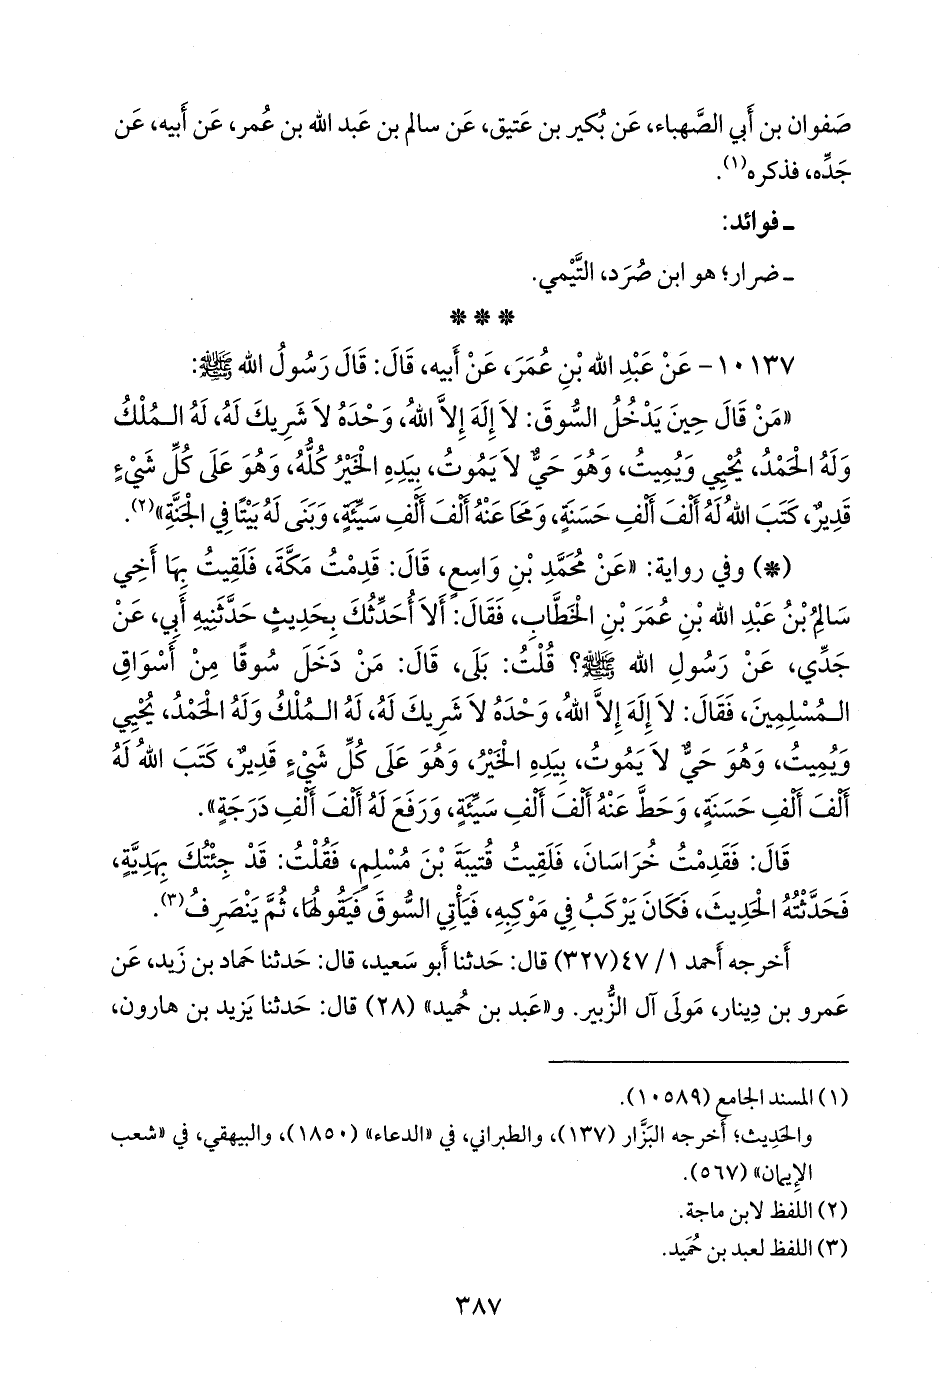 صَفوان بن أَبي الصَّهباء، عَن بُكير بن عَتيق، عَن سالم بن عَبد الله بن عُمر، عَن أَبيه، عَن
جَدِّه، فذكره(١).
ـ فوائد:
ـ ضرار؛ هو ابن صُرَد، التَّيْمي.
* * *
١٠١٣٧- عَنْ عَبْدِ الله بْنِ عُمَرَ، عَنْ أَبيه، قَالَ: قَالَ رَسُولُ الله ﷺ:
«مَنْ قَالَ حِينَ يَدْخُلُ السُّوقَ: لاَ إِلَهَ إِلاَّ اللهُ، وَحْدَهُ لاَ شَرِيكَ لَهُ، لَهُ الـمُلْكُ
وَلَهُ الْحَمْدُ، يُحْيِي وَيُمِيتُ، وَهُوَ حَيٌّ لاَ يَمُوتُ، بِيَدِهِ الْخَيْرُ كُلُّهُ، وَهُوَ عَلَى كُلِّ شَيْءٍ
قَدِيرٌ، كَتَبَ اللهُ لَهُ أَلْفَ أَلْفِ حَسَنَةٍ، وَمَحَا عَنْهُ أَلْفَ أَلْفِ سَيِّئَةٍ، وَبَنَى لَهُ بَيْتًا فِي الْجَنَّةِ»(٢).
(*) وفي رواية: «عَنْ مُحَمَّدِ بْنِ وَاسِعٍ، قَالَ: قَدِمْتُ مَكَّةَ، فَلَقِيتُ بِهَا أَخِي
سَالِمُ بْنُ عَبْدِ الله بْنِ عُمَرَ بْنِ الْخَطَّابِ، فَقَالَ: أَلاَ أُحَدِّثُكَ بِحَدِيثٍ حَدَّثَنِيهِ أَبِي، عَنْ
جَدِّي، عَنْ رَسُولِ الله ﷺ؟ قُلْتُ: بَلَى، قَالَ: مَنْ دَخَلَ سُوقًا مِنْ أَسْوَاقِ
الـمُسْلِمِينَ، فَقَالَ: لاَ إِلَهَ إِلاَّ اللهُ، وَحْدَهُ لاَ شَرِيكَ لَهُ، لَهُ الـمُلْكُ وَلَهُ الْحَمْدُ، يُحْيِي
وَيُمِيتُ، وَهُوَ حَيٌّ لاَ يَمُوتُ، بِيَدِهِ الْخَيْرُ، وَهُوَ عَلَى كُلِّ شَيْءٍ قَدِيرٌ، كَتَبَ اللهُ لَهُ
أَلْفَ أَلْفِ حَسَنَةٍ، وَحَطَّ عَنْهُ أَلْفَ أَلْفِ سَيِّئَةٍ، وَرَفَعَ لَهُ أَلْفَ أَلْفِ دَرَجَةٍ».
قَالَ: فَقَدِمْتُ خُرَاسَانَ، فَلَقِيتُ قُتيبَةَ بْنَ مُسْلِمٍ، فَقُلْتُ: قَدْ جِئْتُكَ بِهَدِيَّةٍ،
فَحَدَّثْتُهُ الْحَدِيثَ، فَكَانَ يَرْكَبُ فِي مَوْكِبِهِ، فَيَأْتِي السُّوقَ فَيَقُولُهَا، ثُمَّ يَنْصَرِفُ(٣).
أَخرجه أَحمد ١/ ٤٧(٣٢٧) قال: حَدثنا أَبو سَعيد، قال: حَدثنا حَماد بن زَيد، عَن
عَمرو بن دِينار، مَولَى آل الزُّبير. و«عَبد بن حُميد» (٢٨) قال: حَدثنا يَزيد بن هارون،
(١) المسند الجامع (١٠٥٨٩).
والحَدِيث؛ أَخرجه البَزَّار (١٣٧)، والطبراني، في «الدعاء» (١٨٥٠)، والبيهقي، في «شعب
الإِيمان» (٥٦٧).
(٢) اللفظ لابن ماجة.
(٣) اللفظ لعبد بن حُمَيد.
٣٨٧